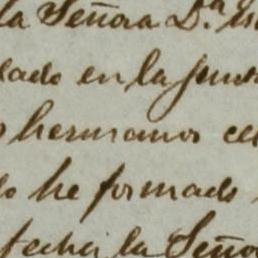 la Señora D.ª
lado en la
hermanos
he formado
fecha la Señor